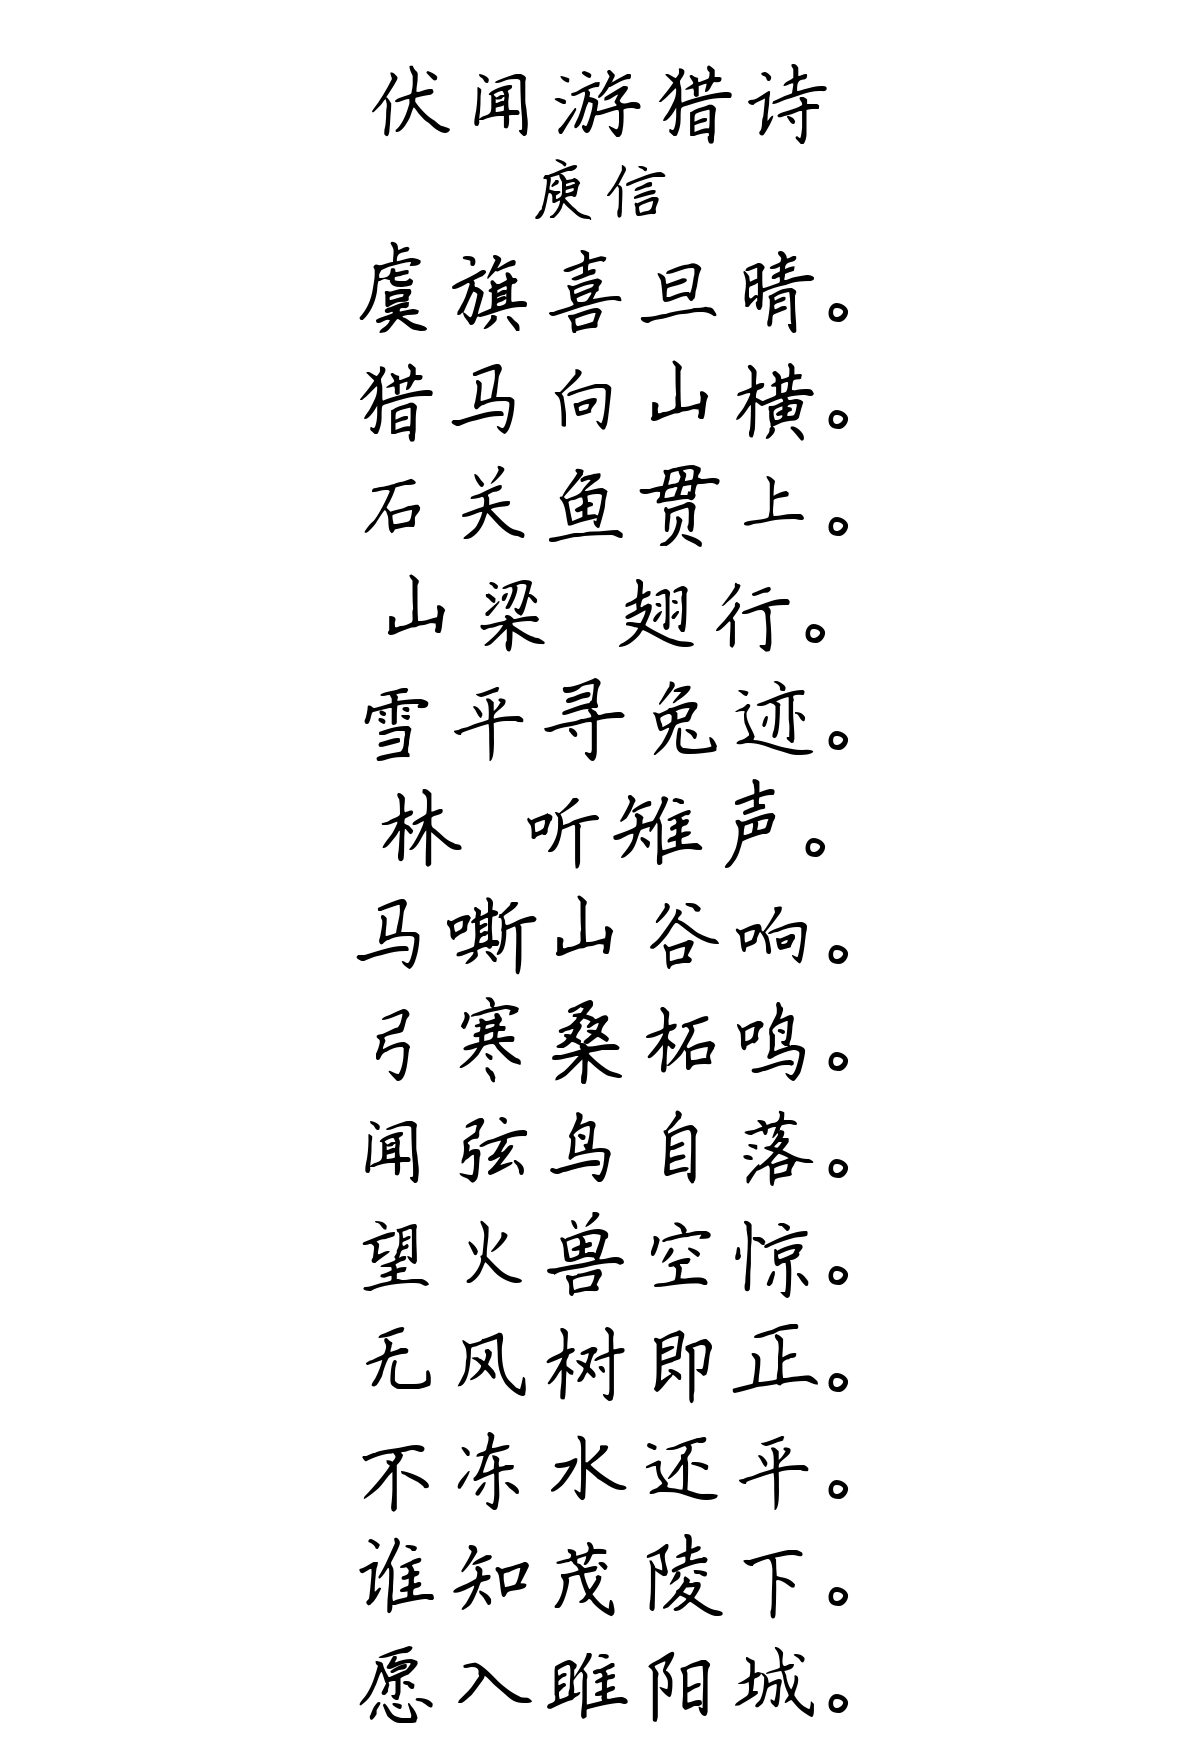 伏闻游猎诗
庾信
虞旗喜旦晴。
猎马向山横。
石关鱼贯上。
山梁 翅行。
雪平寻兔迹。
林 听雉声。
马嘶山谷响。
弓寒桑柘鸣。
闻弦鸟自落。
望火兽空惊。
无风树即正。
不冻水还平。
谁知茂陵下。
愿入睢阳城。